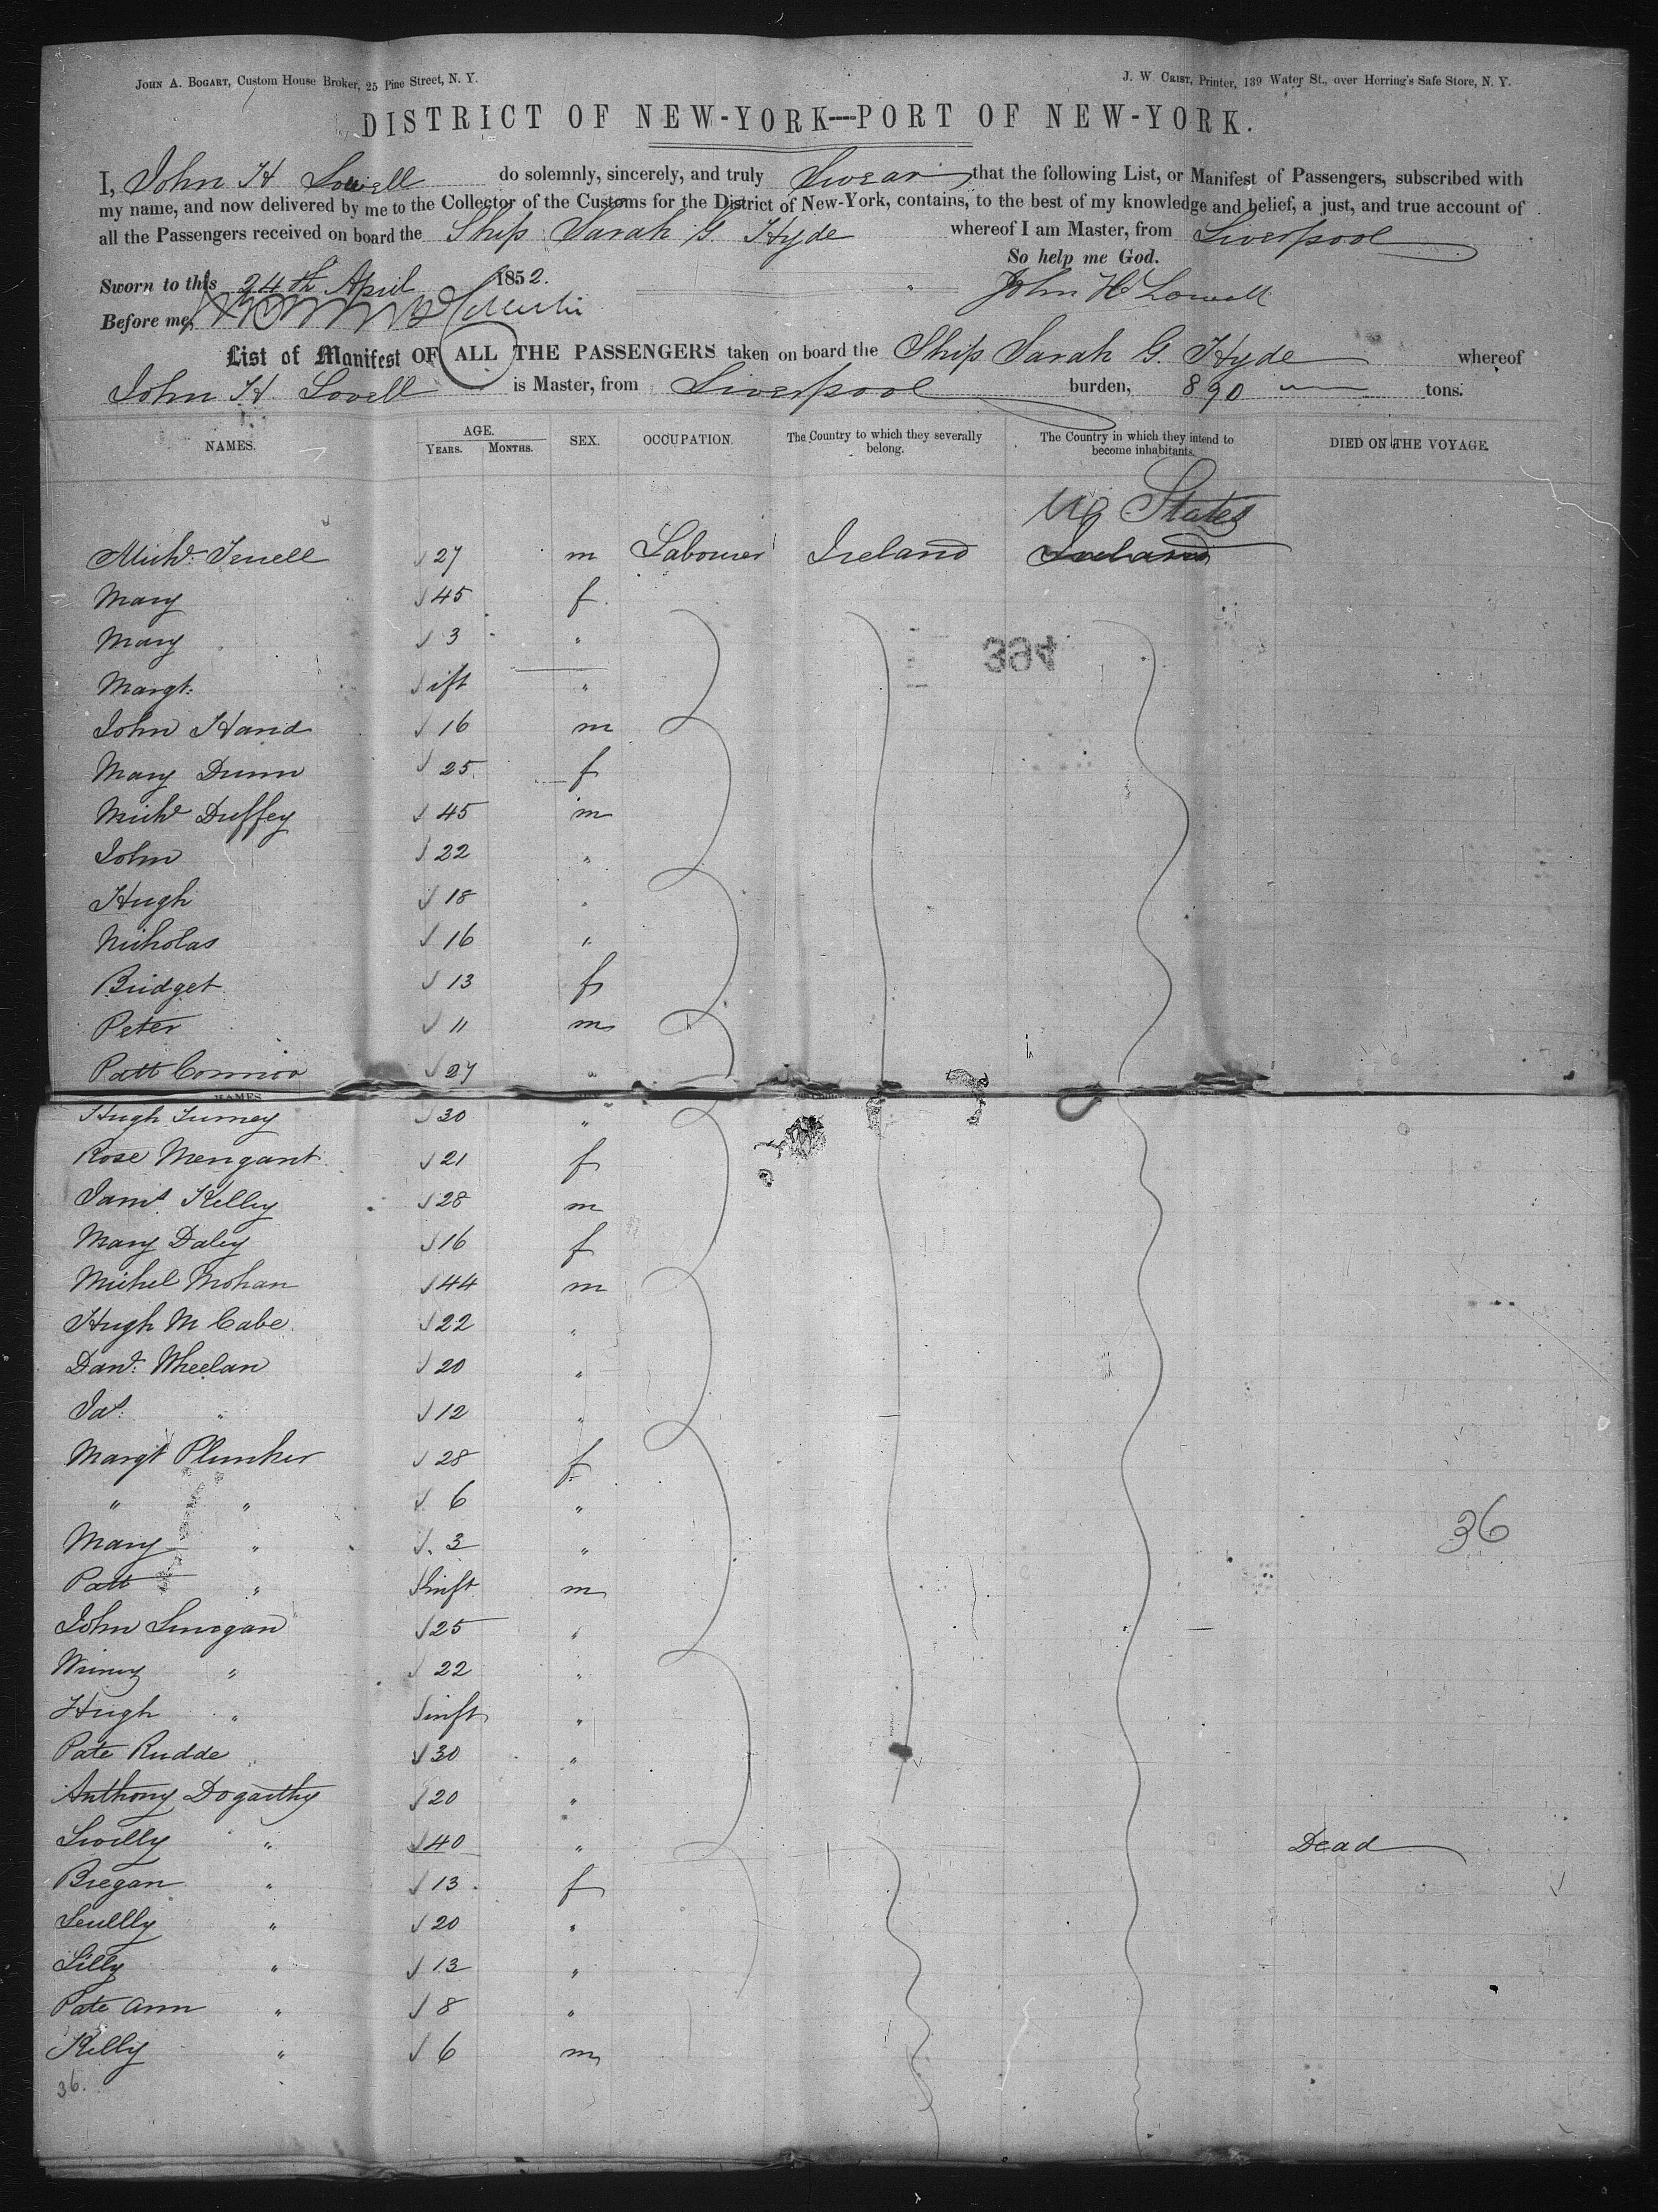 JOHN A. BOGART, Custom House Broker, 25 Pine Street, N. Y. J. W. CRIST, Printer, 139 Water St., over Herring's Safe Store, N. Y.
DISTRICT OF NEW-YORK—PORT OF NEW-YORK.
I, John H Lowell do solemnly, sincerely, and truly Swear that the following List, or Manifest of Passengers, subscribed with
my name, and now delivered by me to the Collector of the Customs for the District of New-York, contains, to the best of my knowledge and belief, a just, and true account of
all the Passengers received on board the Ship Sarah G. Hyde whereof I am Master, from Liverpool
So help me God.
Sworn to this 24th April 1852. John H Lowell
Before me,
List of Manifest OF ALL THE PASSENGERS taken on board the Ship Sarah G. Hyde whereof
John H. Lovell is Master, from Liverpool burden, 890 tons.
NAMES. AGE. YEARS. MONTHS. SEX. OCCUPATION. The Country to which they severally belong. The Country in which they intend to become inhabitants. DIED ON THE VOYAGE.
States
Michd. 27 m Labourer Ireland Ireland
Mary 45 f
Mary 3 "
394
Margt. ift "
John Hand 16 m
Mary Dunn 25 f
Michd Duffey 45 m
John 22 "
Hugh 18 "
Nicholas 16 "
Bridget 13 f
Peter 11 m
Patt Connor 27 "
NAMES
Hugh 30 "
Rose Mengant 21 f
Jams Kelley 28 m
Mary Daley 16 f
Michel Mohan 44 m
Hugh M Cabe 22 "
Danl. Wheelan 20 "
Jas. " 12 "
Margt Plunker 28 f
" " 6 "
Mary " 3 "
36
Patt " inft m
John 25 "
" 22 "
Hugh " inft "
Pate Rudde 30 "
Anthony Dogarthy 20 "
" 40 " Dead
Bregan " 13 f
" 20 "
Lilly " 13 "
Pate Ann " 8 "
Kelly " 6 m
36.